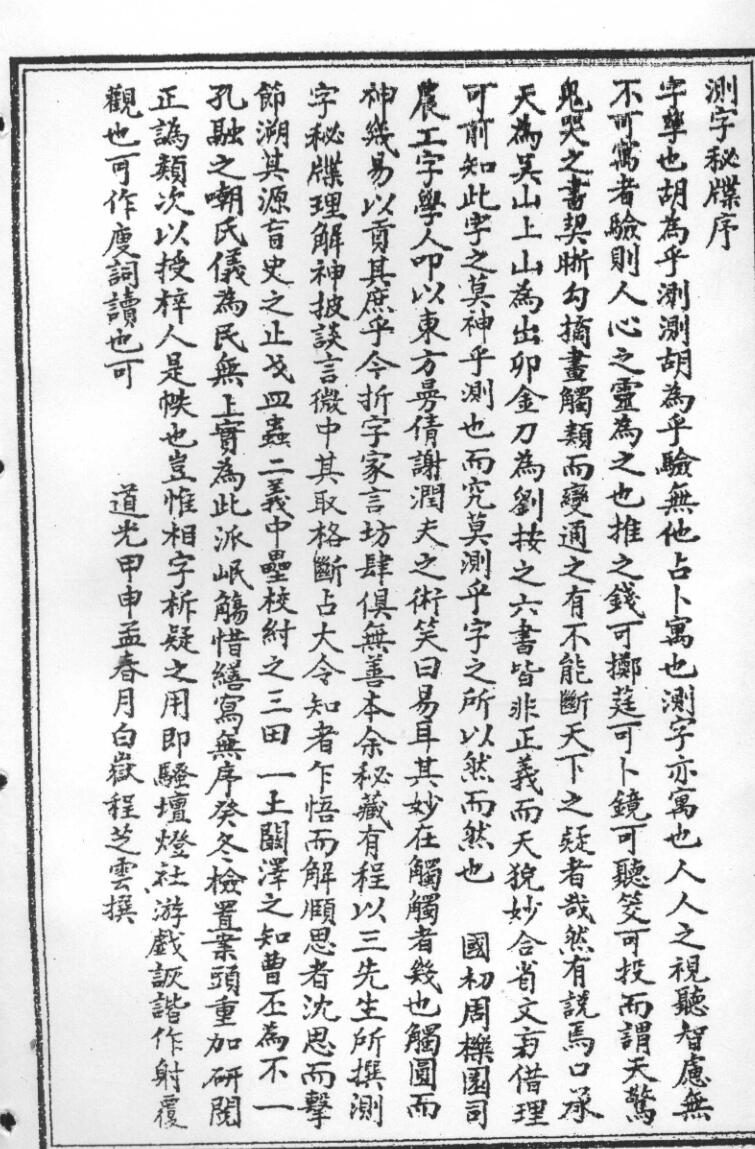 測字秘牒序
字孳也胡為乎測測胡為乎驗無他占卜寓也測字亦寓也人人之視聽智慮無
不可寓者驗則人心之靈為之也推之錢可擲莛可卜鏡可聽筊可投而謂天驚
鬼哭之書契晰勾摘畫觸類而變通之有不能斷天下之疑者哉然有說焉口承
天為吴山上山為出卯金刀為劉按之六書皆非正義而天貌妙合省文旁借理
可前知此字之莫神乎測也而究莫測乎字之所以然而然也 國初周櫟園司
農工字學人叩以東方曼倩謝潤夫之術笑曰易耳其妙在觸觸者幾也觸圓而
神幾易以貢其庶乎今折字家言坊肆俱無善本余秘藏有程以三先生所撰測
字秘牒理解神披談言微中其取格斷占大令知者乍悟而解頤思者沈思而擊
節溯其源盲史之止戈皿蟲二義中壘校紂之三田一土闞澤之知曹丕為不一
孔融之嘲氏儀為民無上實為此派岷觴惜繕寫無序癸冬檢置案頭重加研閱
正譌類次以授梓人是帙也豈惟相字析疑之用即騷壇燈社游戲詼諧作射覆
觀也可作廋詞讀也可
道光甲申孟春月白嶽程芝雲撰